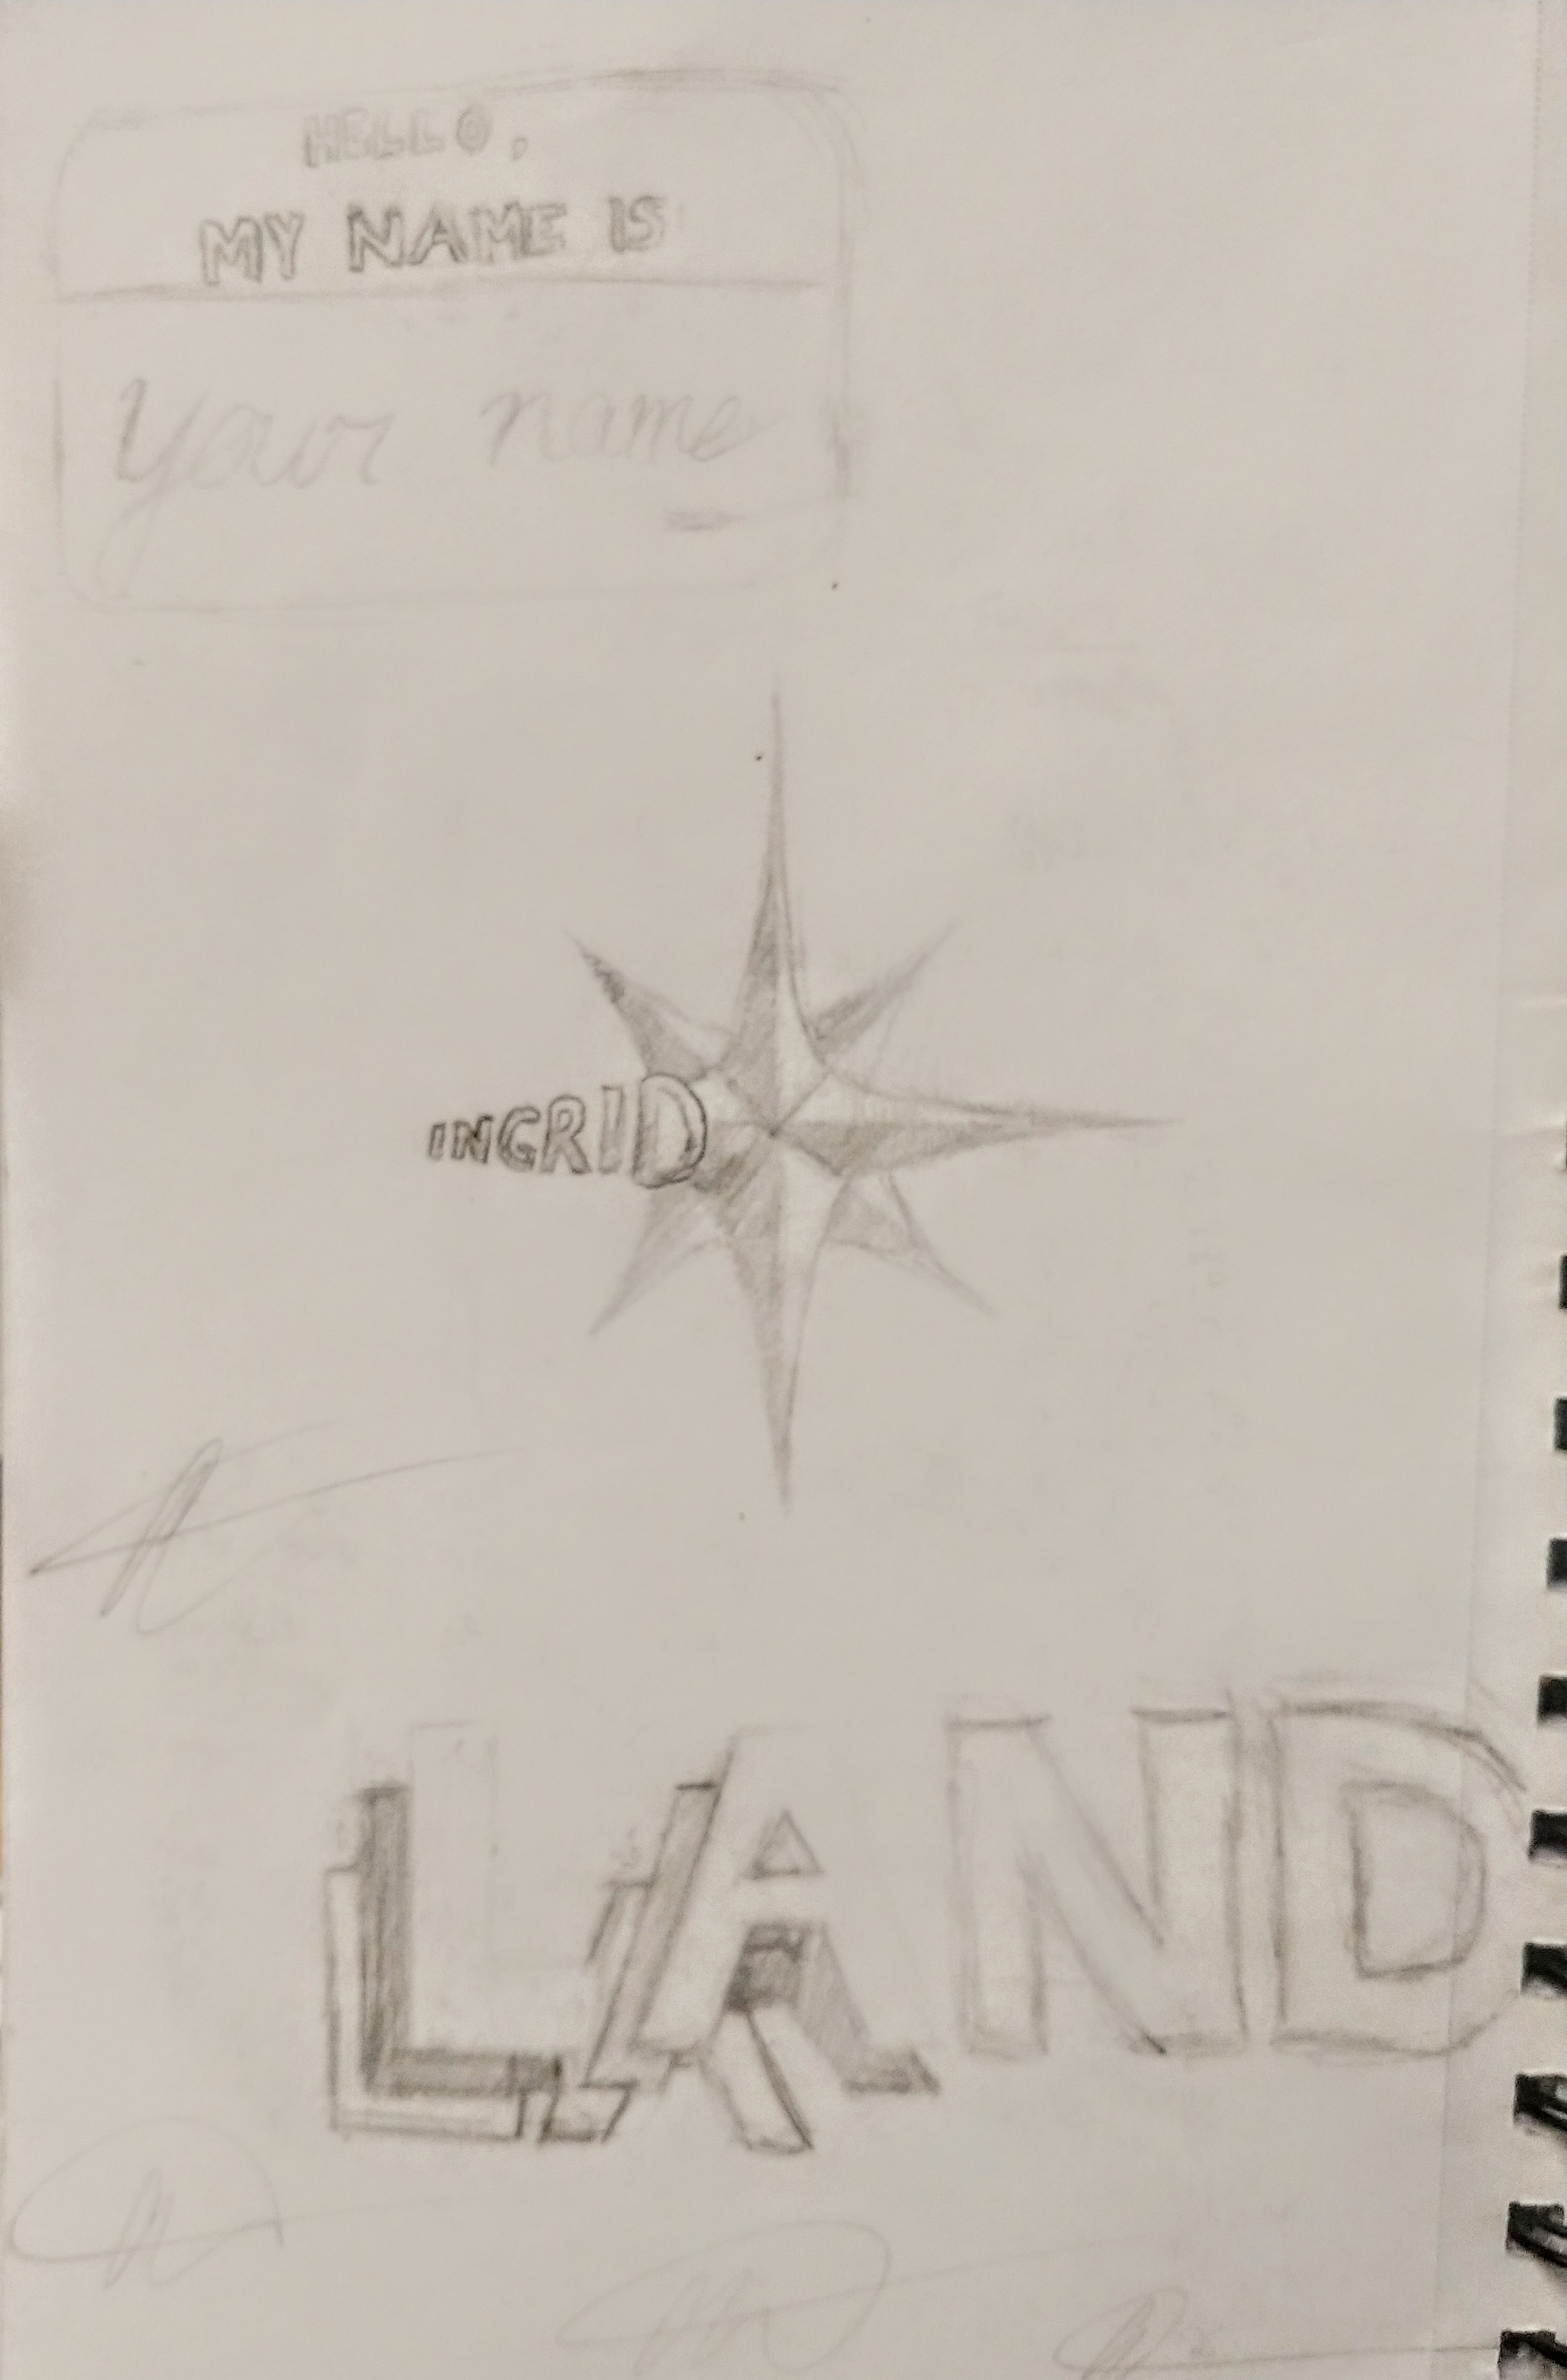 HELLO,
MY NAME IS
your name
INGRID
LAND